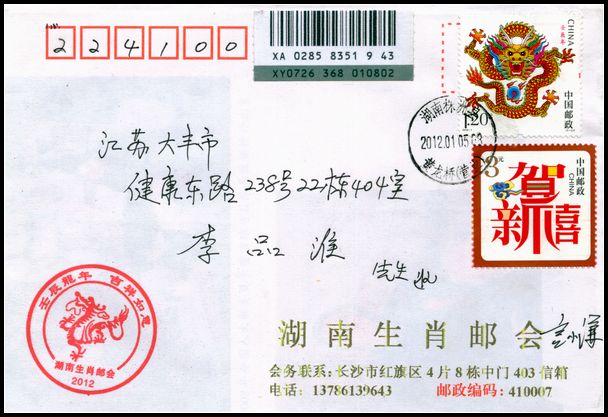 224100
XA 0285 8351 9 43
XY0726 368 010802
CHINA
壬辰年
1.20
中国邮政
湖南株洲
2012.01.05.08
3元
中国邮政
CHINA
贺
新禧
江苏大丰市
健康东路238号22栋404室
李品淮
先生收
壬辰龍年 吉祥如意
湖南生肖邮会
2012
湖南生肖邮会
会务联系:长沙市红旗区4片8栋中门403信箱
电话:13786139643 邮政编码:410007